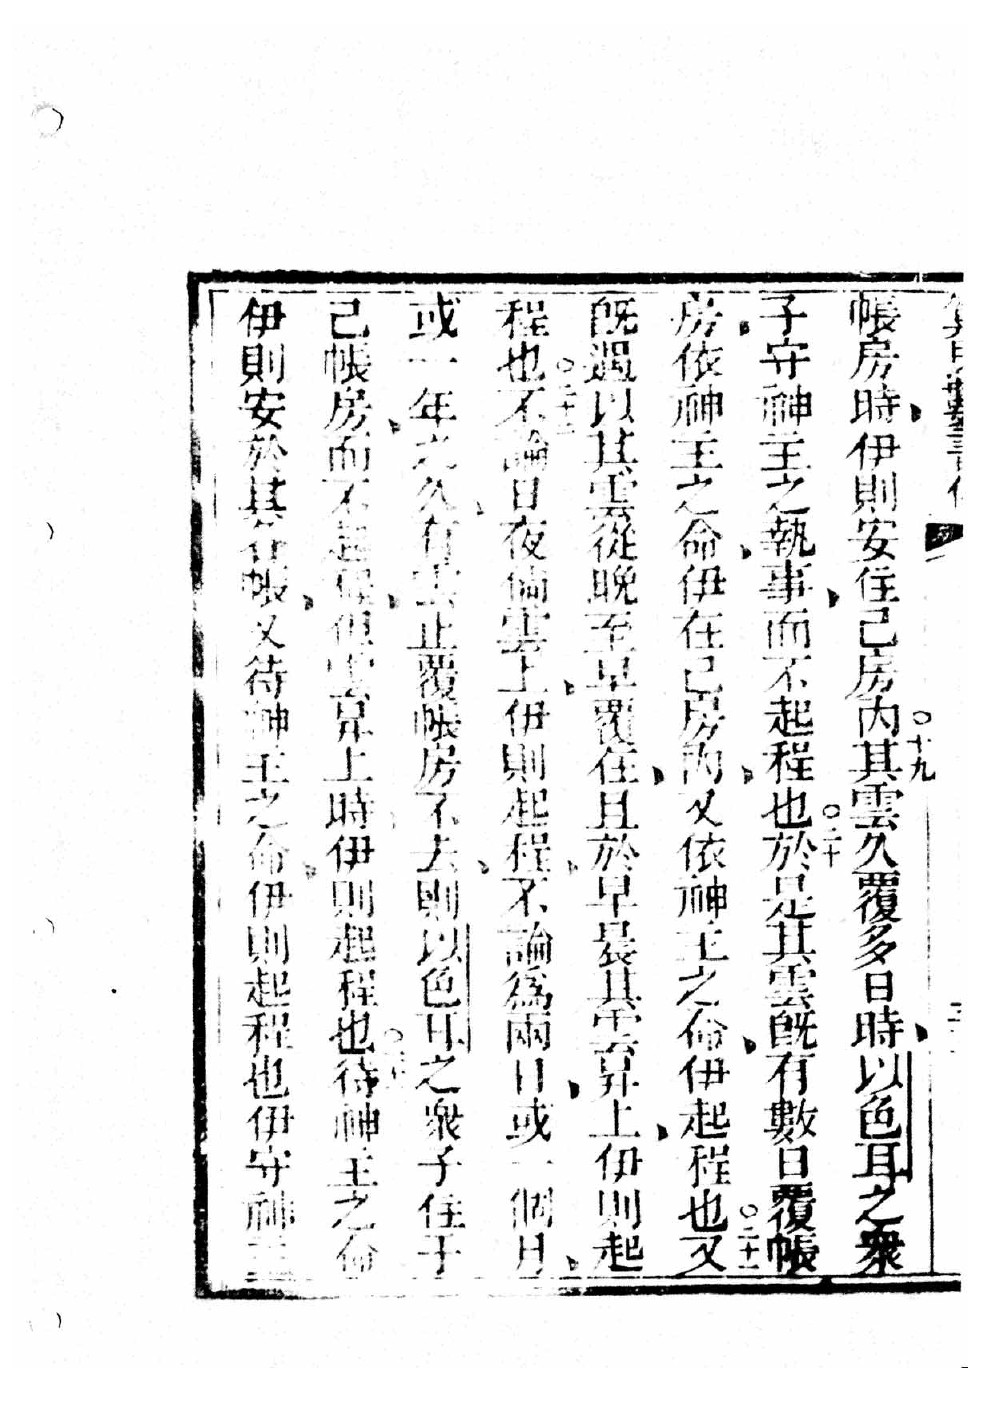 帳房時伊則安住己房內○十九其雲久覆多日時以色耳之衆
子守神主之執事而不起程也○二十於是其雲旣有數日覆帳
房依神主之命伊在己房內又依神主之命伊起程也○二十一又
旣過以其雲從晚至早覆住且於早晨其雲昇上伊則起
程也○二十二不論日夜倘雲上伊則起程不論爲兩日或一個月
或一年之久有雲止覆帳房不去則以色耳之衆子住于
己帳房而不起程但雲昇上時伊則起程也○二十三待神主之命
伊則安於其在帳又待神主之命伊則起程也伊守神主